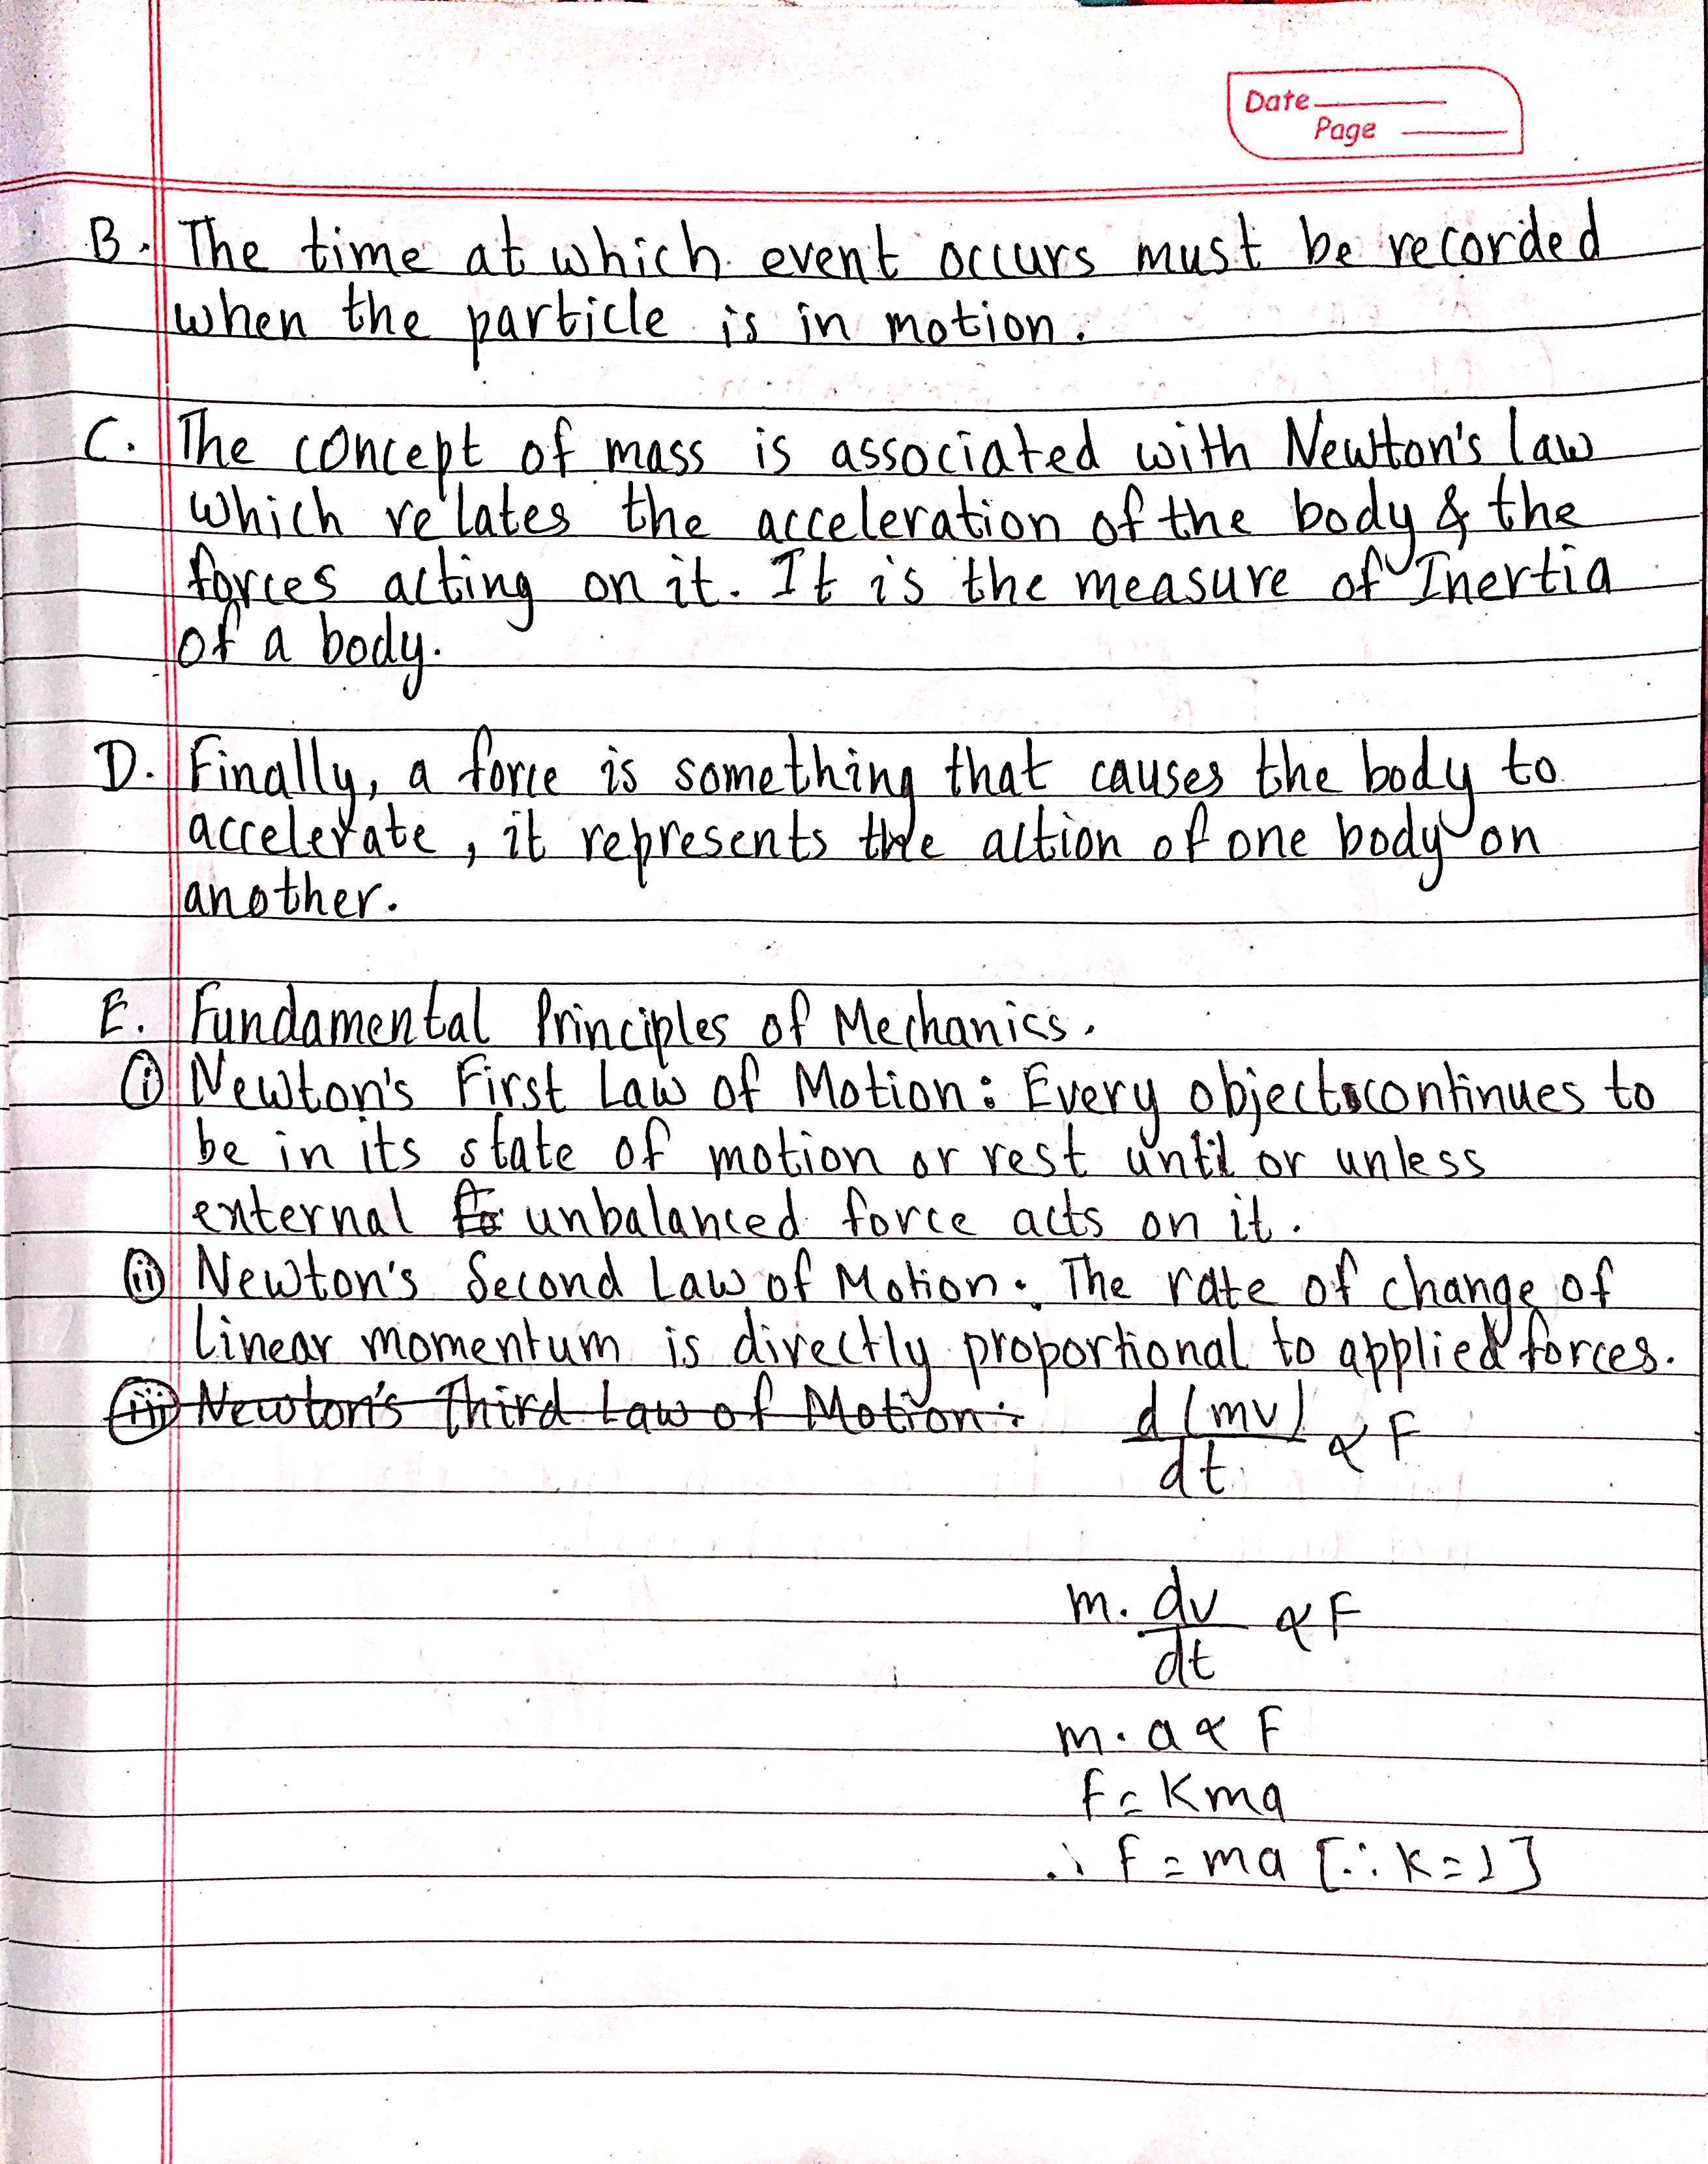 Date
Page
B. The time at which event occurs must be recorded
when the particle is in motion.
C. The concept of mass is associated with Newton's law
which relates the acceleration of the body & the
forces acting on it. It is the measure of Inertia
of a body.
D. Finally, a force is something that causes the body to
accelerate, it represents the action of one body on
another.
E. Fundamental Principles of Mechanics.
(i) Newton's First Law of Motion: Every object continues to
be in its state of motion or rest until or unless
external unbalanced force acts on it.
(ii) Newton's Second Law of Motion. The rate of change of
linear momentum is directly proportional to applied forces.
(iii) Newton's Third Law of Motion: d(mv)/dt ∝ F
m. dv/dt ∝ F
m. a ∝ F
F = Kma
∴ F = ma [∵ K = 1]